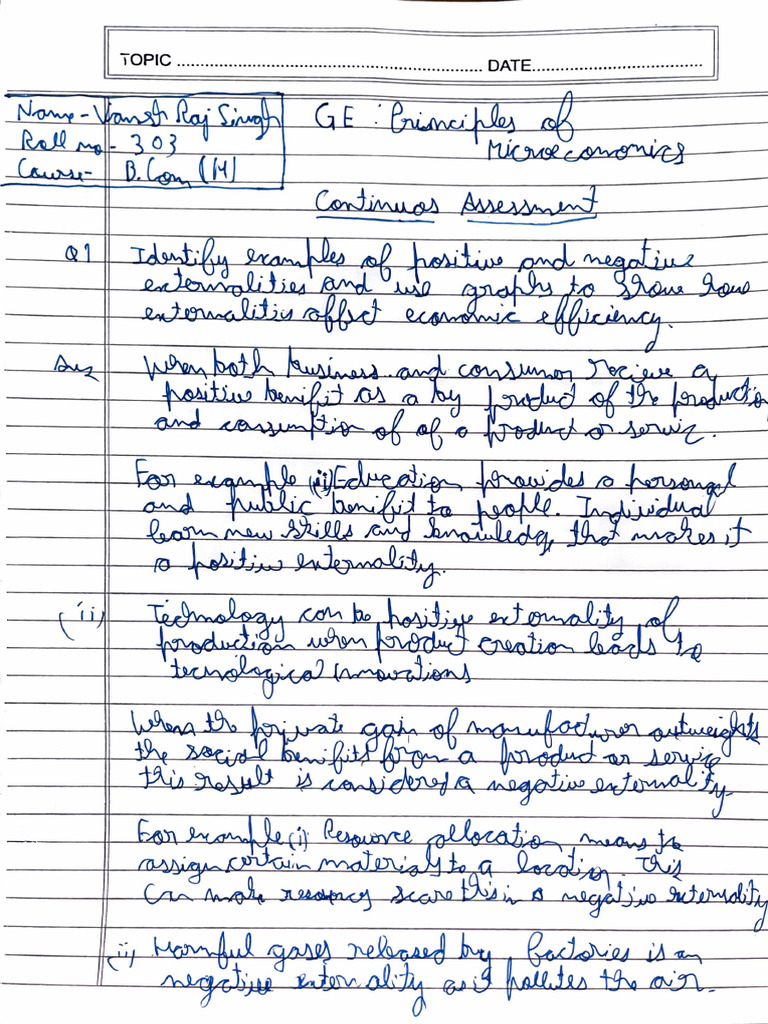 TOPIC ........................................ DATE........................
Name - Vansh Raj Singh
Roll no - 303
Course - B.Com (H)
GE : Principles of
Microeconomics
Continuos Assessment
Q1 Identify examples of positive and negative
externalities and use graphs to show how
externalities affect economic efficiency.
Ans When both business and consumer recieve a
positive benifit as a by product of the production
and consumption of of a product or servic.
For example (i) Education provides a personal
and public benifit to people. Individual
learn new skills and knowledge that makes it
a positive externality.
(ii) Technology can be positive externality of
production when product creation leads to
tecnological innovations
When the private gain of manufacturer outweights
the social benifits from a product or service
this result is considered a negative externality
For example (i) Resource allocation means to
assign certain materials to a location. This
can make scarce this is a negative externality
(ii) Harmful gases released by factories is an
negative externality as it pollutes the air.